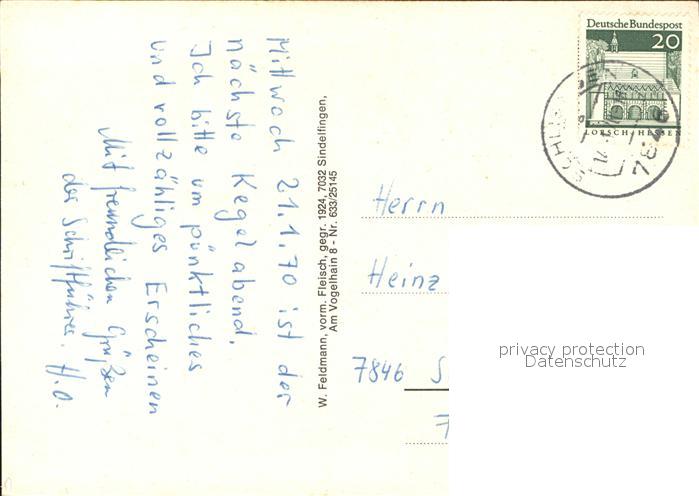 Mittwoch 21.1.70 ist der
nächste Kegelabend.
Ich bitte um pünktliches
und vollzähliges Erscheinen
Mit freundlichen Grüßen
der Schriftführer. H.O.
W. Feldmann, vorm. Fleisch, gegr. 1924, 7032 Sindelfingen,
Am Vogelhain 8 - Nr. 633/25145
Deutsche Bundespost
20
LORSCH/HESSEN
Herrn
Heinz
7846 S
7
privacy protection
Datenschutz